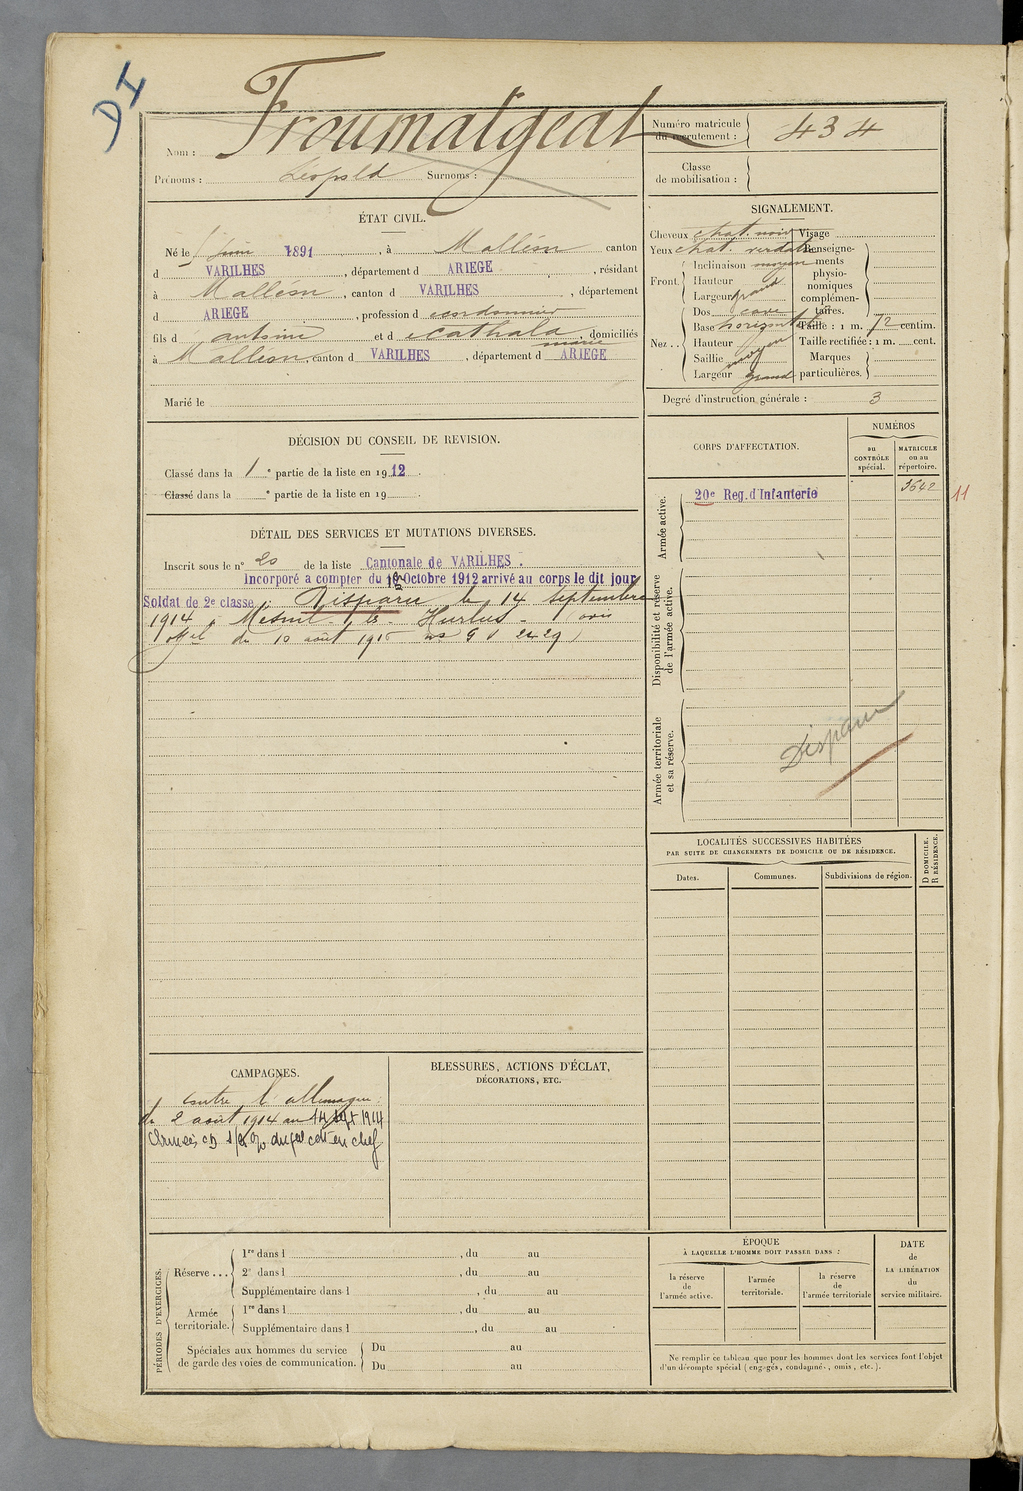 DI
Froumatgeat
Nom :
Prénoms : Léopold Surnoms :
Numéro matricule
du recrutement : 434
Classe
de mobilisation :
ÉTAT CIVIL.
Né le juin 1891, à Malléon canton
d VARILHES, département d ARIEGE, résidant
à Malléon, canton d VARILHES, département
d ARIEGE, profession d cordonnier
fils d antoine et d Cathala domiciliés
marie
à Malléon canton d VARILHES, département d ARIEGE
Marié le
SIGNALEMENT.
Cheveux chat. noir Visage
Yeux chat. verdatre
Front. Inclinaison moyen
Hauteur
Largeur grand
Nez . . Dos cave
Base horizontale
Hauteur
Saillie moyen
Largeur grand
Renseigne-
ments
physio-
nomiques
complémen-
taires.
Taille : 1 m. 72 centim.
Taille rectifiée : 1 m. cent.
Marques
particulières.
Degré d'instruction générale : 3
DÉCISION DU CONSEIL DE REVISION.
Classé dans la 1 e partie de la liste en 1912.
Classé dans la e partie de la liste en 19 .
CORPS D'AFFECTATION.
NUMÉROS
au
CONTRÔLE
spécial.
MATRICULE
ou au
répertoire.
Armée active.
20e Reg. d'Infanterie
3642
11
Disponibilité et réserve
de l'armée active.
Armée territoriale
et sa réserve.
Disparu
DÉTAIL DES SERVICES ET MUTATIONS DIVERSES.
Inscrit sous le n° 20 de la liste Cantonale de VARILHES.
Incorporé a compter du Octobre 1912 arrivé au corps le dit jour
Soldat de 2e classe; Disparu le 14 septembre
1914 à Mesnil les Hurlus - (avis
offel du 10 août 1915 2429)
LOCALITÉS SUCCESSIVES HABITÉES
PAR SUITE DE CHANGEMENTS DE DOMICILE OU DE RÉSIDENCE.
D DOMICILE.
R RÉSIDENCE.
Dates.
Communes.
Subdivisions de région.
CAMPAGNES.
contre l'allemagne :
du 2 août 1914 au 14 sept 1914
Armées du Gal cdt en chef
BLESSURES, ACTIONS D'ÉCLAT,
DÉCORATIONS, ETC.
PÉRIODES D'EXERCICES.
Réserve . . .
1re dans l , du au
2e dans l , du au
Supplémentaire dans l , du au
Armée
territoriale.
1re dans l , du au
Supplémentaire dans l , du au
Spéciales aux hommes du service
de garde des voies de communication.
Du au
Du au
ÉPOQUE
À LAQUELLE L'HOMME DOIT PASSER DANS :
la réserve
de
l'armée active.
l'armée
territoriale.
la réserve
de
l'armée territoriale
DATE
de
LA LIBÉRATION
du
service militaire.
Ne remplir ce tableau que pour les hommes dont les services font l'objet
d'un décompte spécial (engagés, condamnés, omis, etc.).